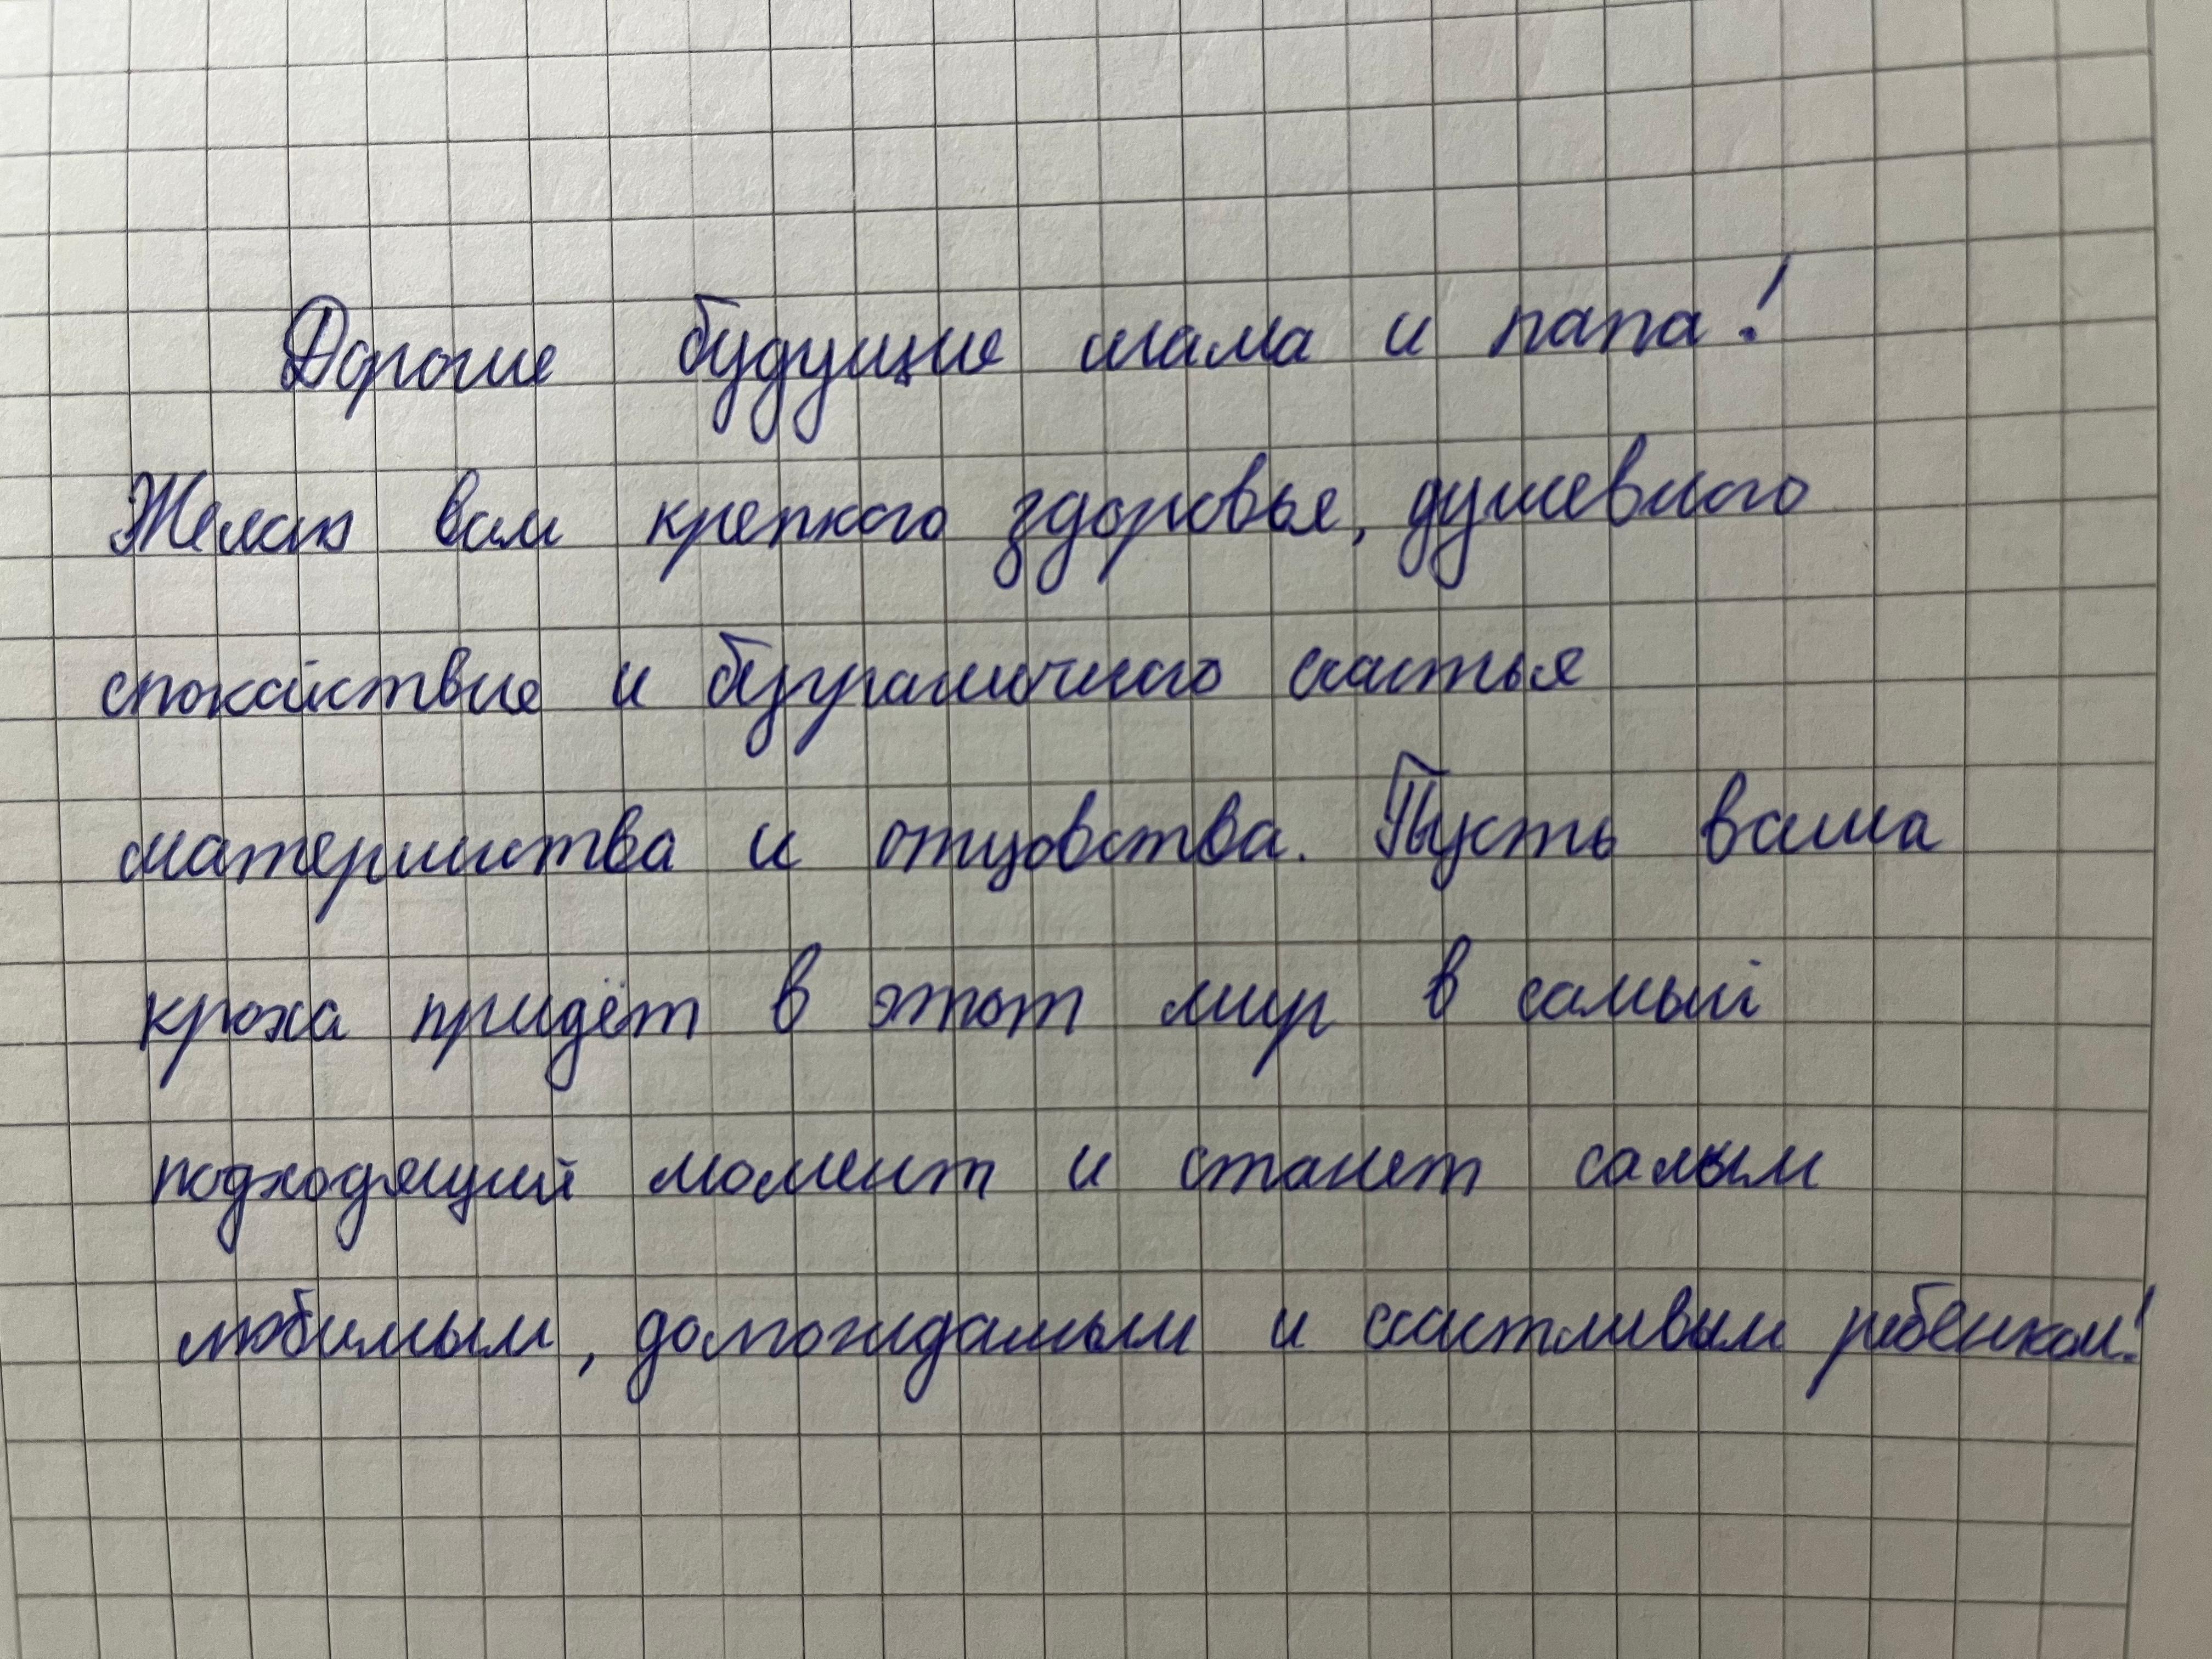 Дорогие будущие мама и папа!
Желаю вам крепкого здоровья, душевного
спокойствия и безграничного счастья
материнства и отцовства. Пусть ваша
кроха придёт в этот мир в самый
подходящий момент и станет самым
любимым, долгожданным и счастливым ребенком!